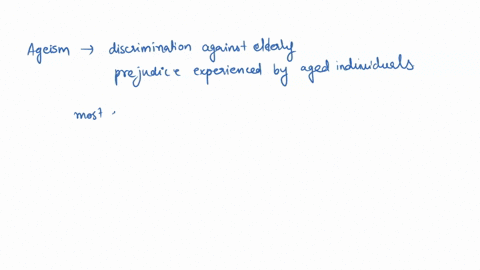 Ageism → discrimination against elderly
prejudice experienced by aged individuals
most